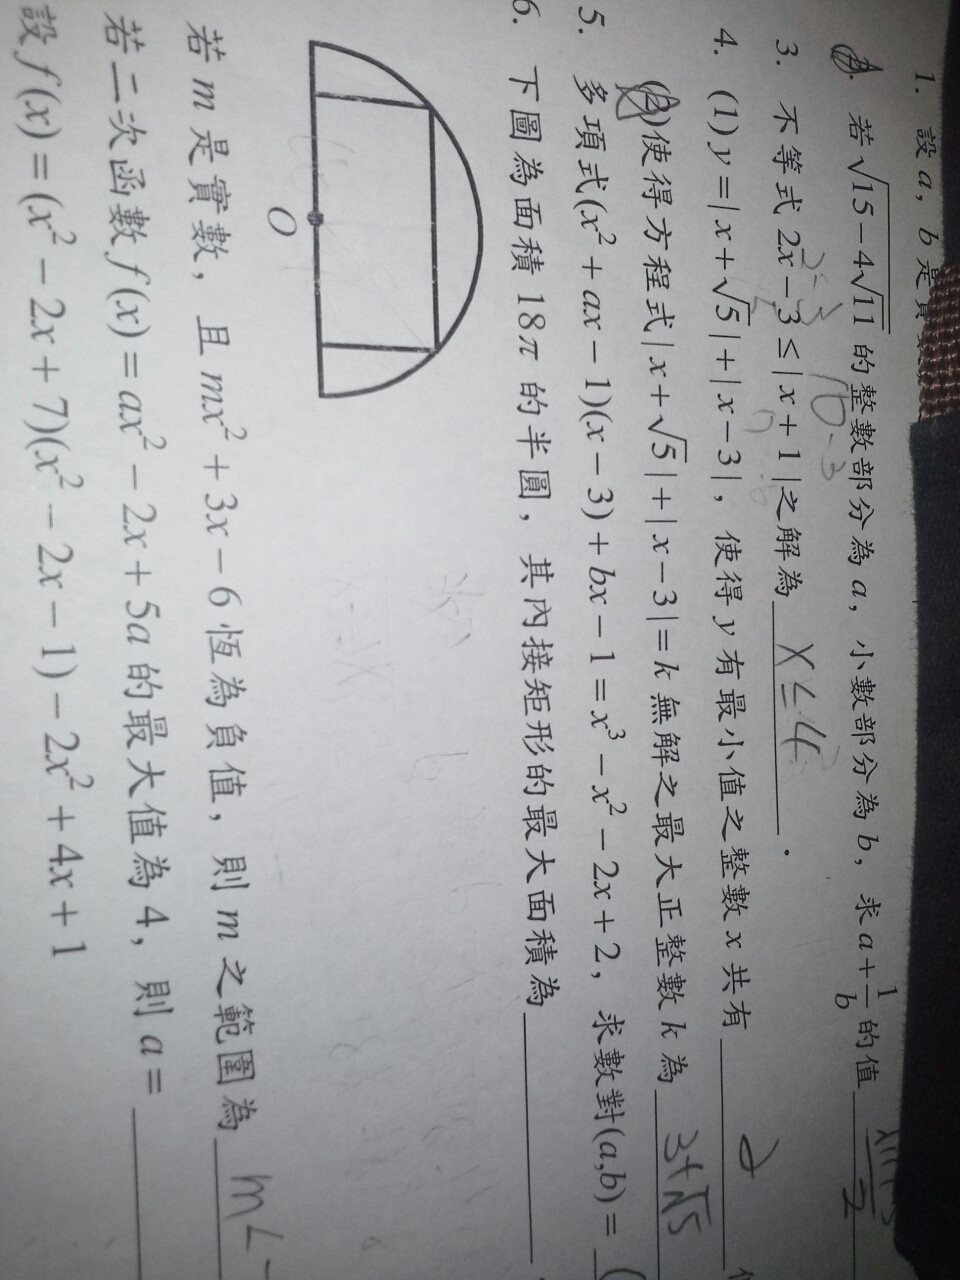 1. 設a, b是實數
若√15-4√11 的整數部分為a, 小數部分為b, 求a+1/b 的值
3. 不等式 2x-3≤|x+1|之解為 x≤4.
4. (1) y=|x+√5|+|x-3|, 使得y有最小值之整數x共有 2
(2)使得方程式|x+√5|+|x-3|=k無解之最大正整數k為 3+√5
5. 多項式(x²+ax-1)(x-3)+bx-1=x³-x²-2x+2, 求數對(a,b)= (
6. 下圖為面積18π的半圓, 其內接矩形的最大面積為
O
若m是實數, 且mx²+3x-6恆為負值, 則m之範圍為 m<-
若二次函數f(x)=ax²-2x+5a的最大值為4, 則a=
設f(x)=(x²-2x+7)(x²-2x-1)-2x²+4x+1